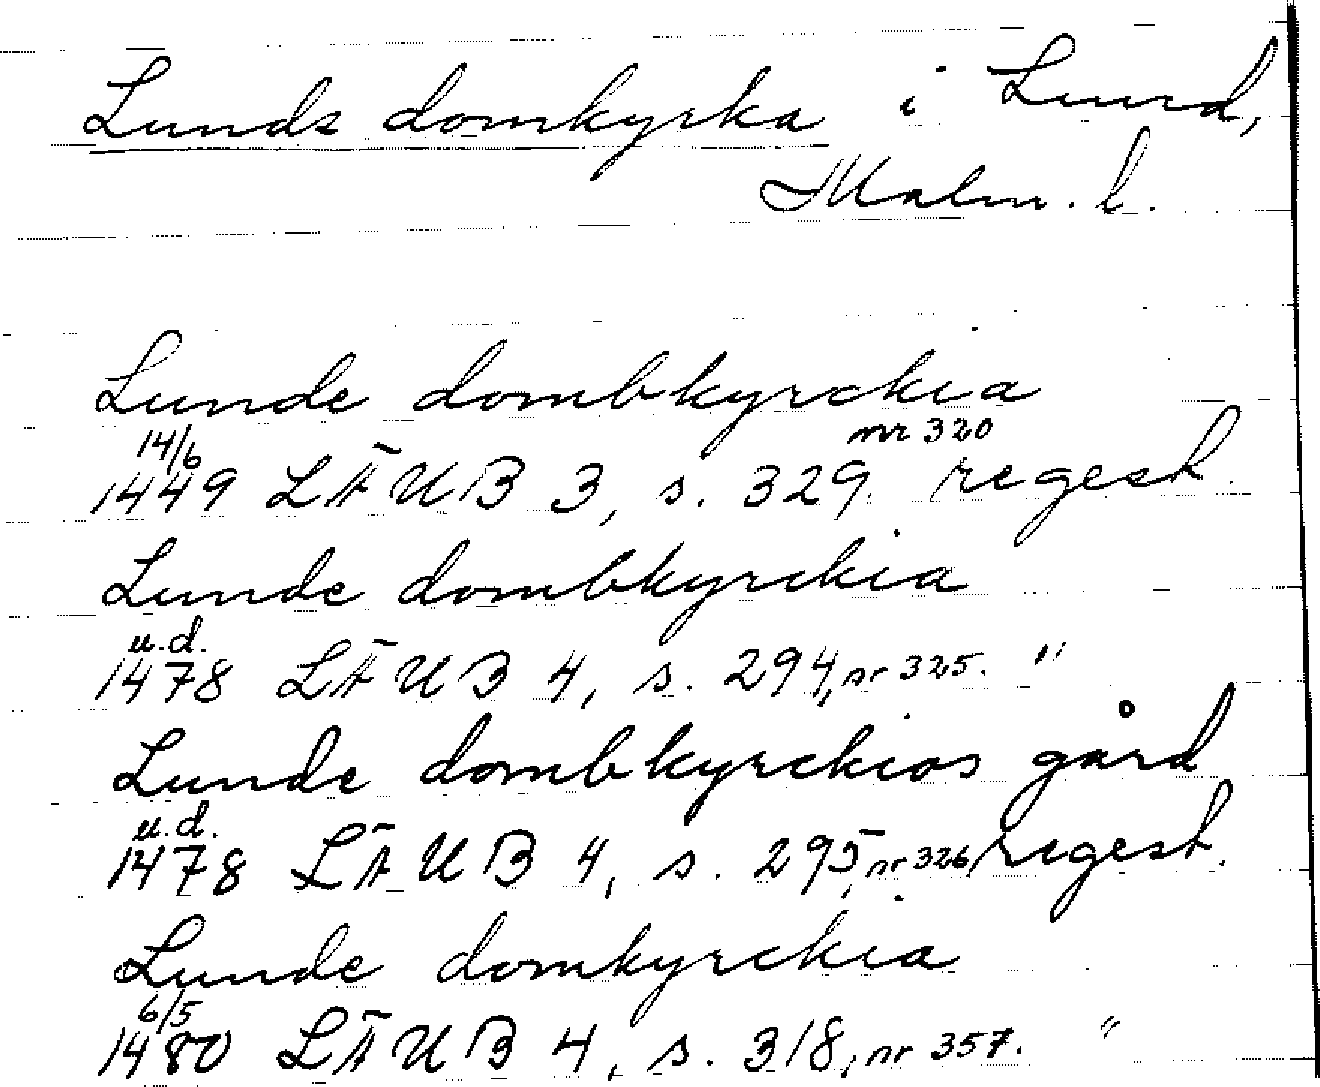 Lunds domkyrka i Lund,
Malm. l.
Lunde dombkyrckia
14/6 nr 320
1449 LÄUB 3, s. 329. regest.
Lunde dombkyrckia
u.d.
1478 LÄUB 4, s. 294, nr 325. "
Lunde dombkyrckios gård
u.d.
1478 LÄUB 4, s. 295, nr 326, regest.
Lunde domkyrckia
6/5
1480 LÄUB 4, s. 318, nr 357. "